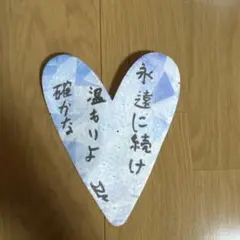 永遠に続け
温もりよ
確かな